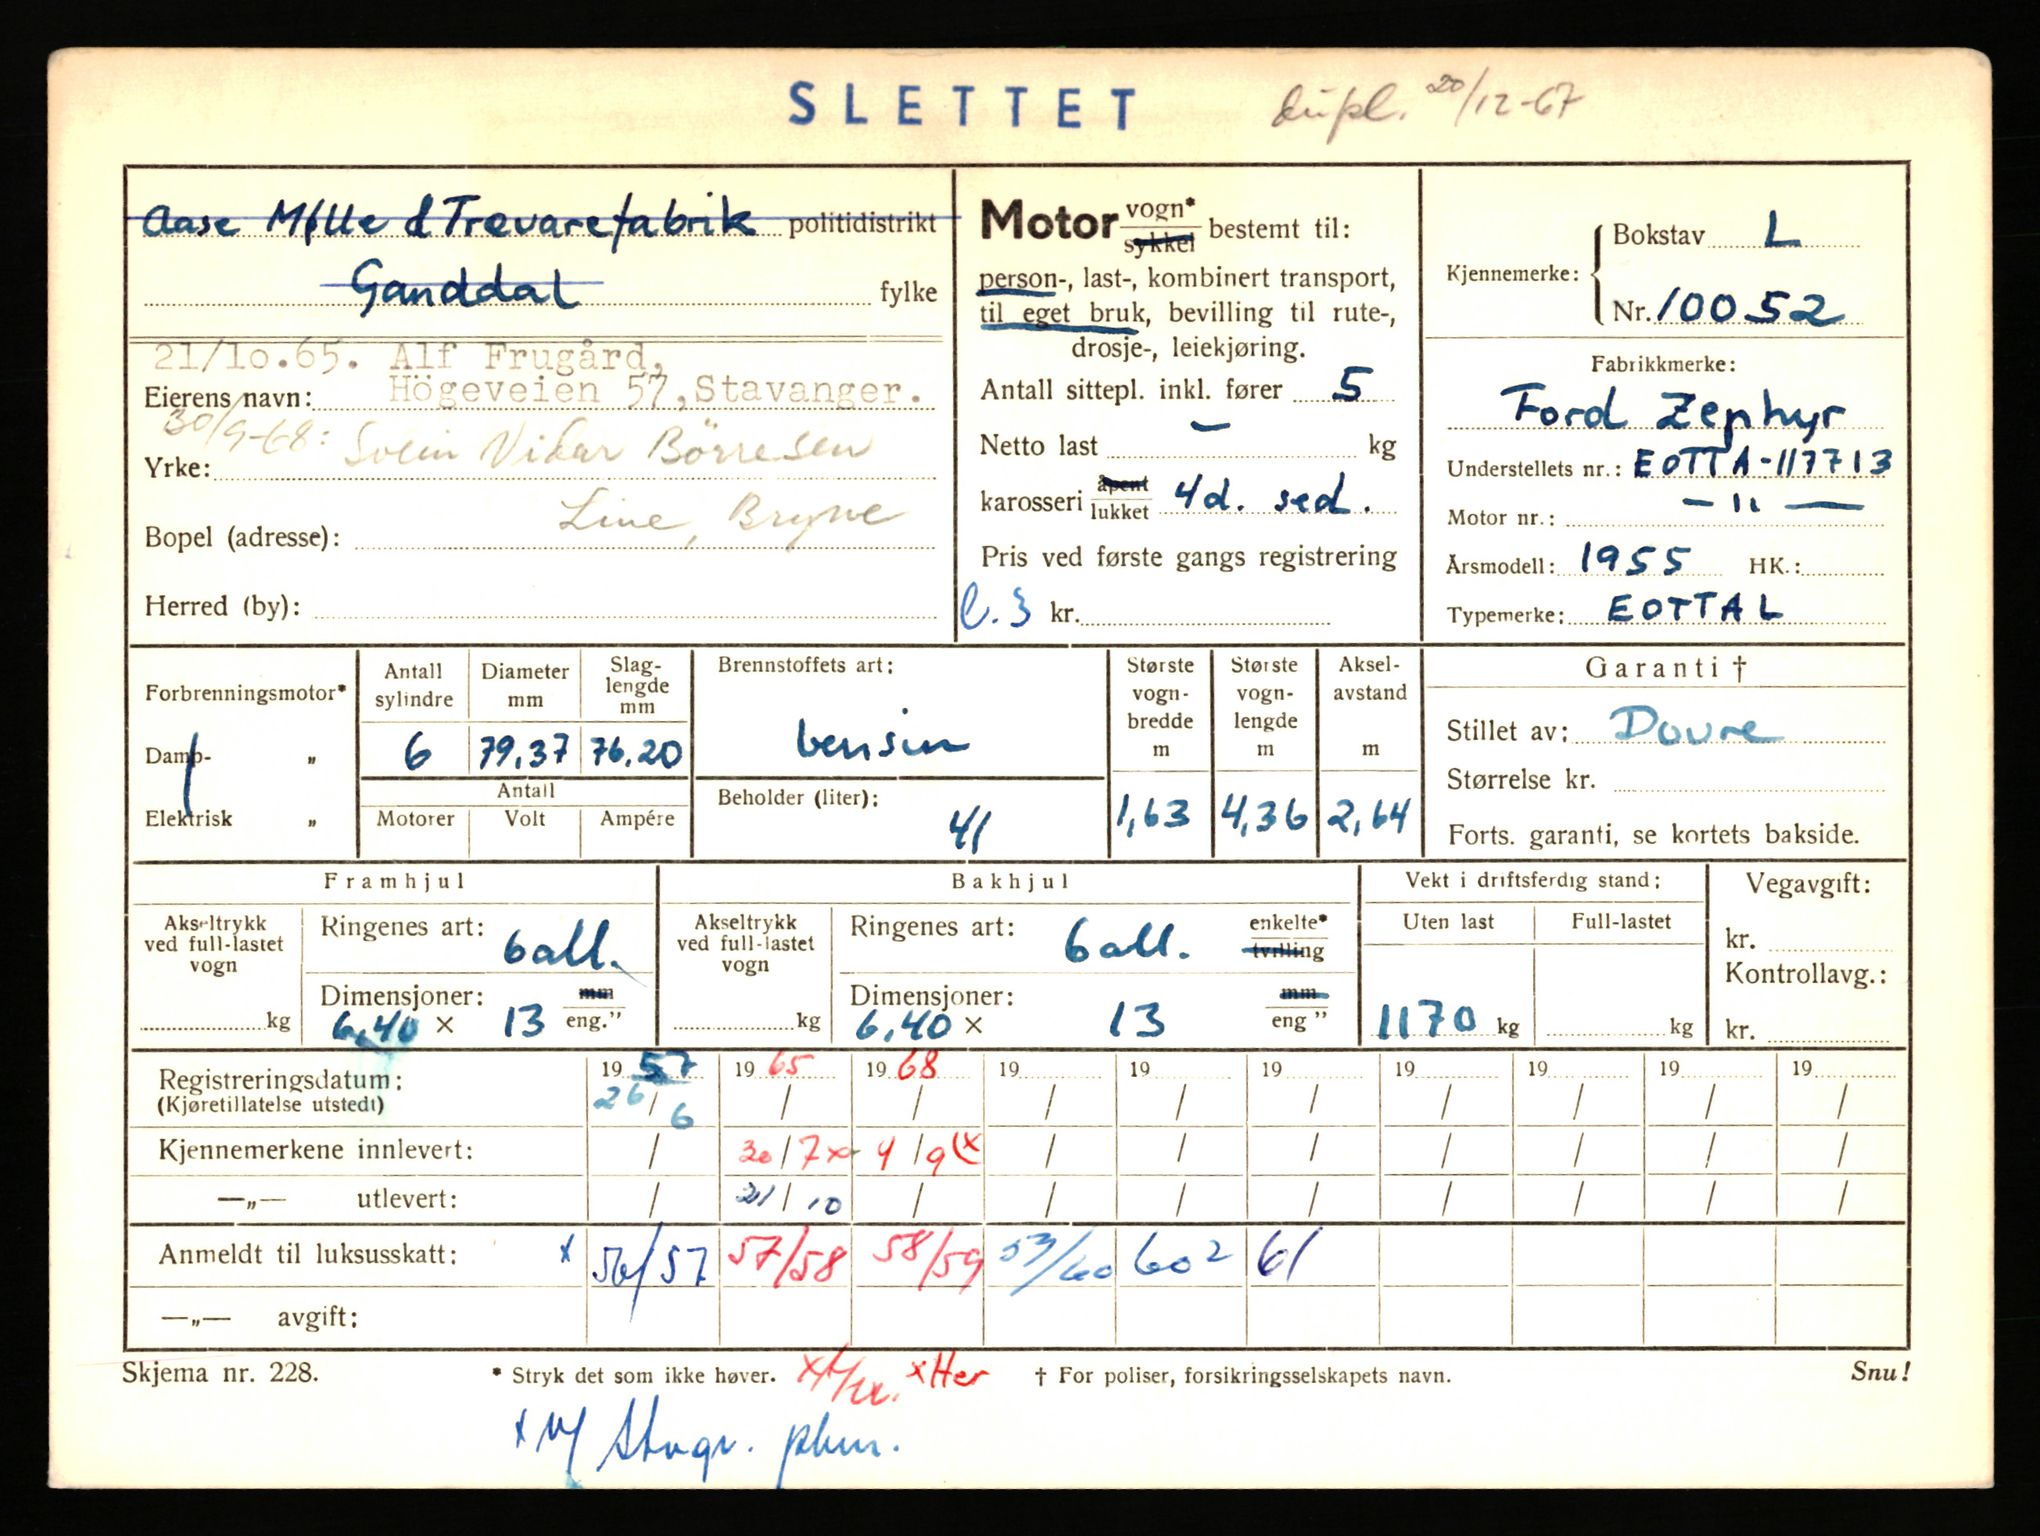 SLETTET dupl. 20/12-67
Aase Mølle & Trevarefabrik politidistrikt
Ganddal fylke
21/10.65. Alf Frugård,
Eierens navn: Högeveien 57, Stavanger.
30/9-68: Svein Vidar Börresen
Yrke:
Line, Bryne
Bopel (adresse):
Herred (by):
Motor vogn* sykkel bestemt til:
person-, last-, kombinert transport,
til eget bruk, bevilling til rute-,
drosje-, leiekjøring.
Antall sittepl. inkl. fører 5
Netto last – kg
karosseri åpent lukket 4d. sed.
Pris ved første gangs registrering
l.3 kr.
Kjennemerke: Bokstav L
Nr. 10052
Fabrikkmerke:
Ford Zephyr
Understellets nr.: EOTTA-117713
Motor nr.: – " –
Årsmodell: 1955 HK.:
Typemerke: EOTTAL
Forbrenningsmotor*
Damp- „
Elektrisk „
Antall sylindre 6
Diameter mm 79,37
Slag-lengde mm 76.20
Antall
Motorer Volt Ampére
Brennstoffets art:
bensin
Beholder (liter):
41
Største vogn-bredde m 1,63
Største vogn-lengde m 4,36
Aksel-avstand m 2,64
Garanti †
Stillet av: Dovre
Størrelse kr.
Forts. garanti, se kortets bakside.
Framhjul
Akseltrykk ved full-lastet vogn
kg
Ringenes art: ball.
Dimensjoner: mm
6,40 × 13 eng."
Bakhjul
Akseltrykk ved full-lastet vogn
kg
Ringenes art: ball. enkelte* tvilling
Dimensjoner: mm
6.40 × 13 eng "
Vekt i driftsferdig stand:
Uten last Full-lastet
1170 kg kg
Vegavgift:
kr.
Kontrollavg.:
kr.
Registreringsdatum: 19 57 19 65 19 68 19 19 19 19 19 19 19
(Kjøretillatelse utstedt) 26/6 / / / / / / / / /
Kjennemerkene innlevert: / 30/7 x 4/9 (x / / / / / / /
—„— utlevert: / 21/10 / / / / / / / /
Anmeldt til luksusskatt: x 56/57 57/58 58/59 59/60 60² 61
—„— avgift:
Skjema nr. 228. * Stryk det som ikke høver. x Her † For poliser, forsikringsselskapets navn. Snu!
x v/ Stvgr. pkm.